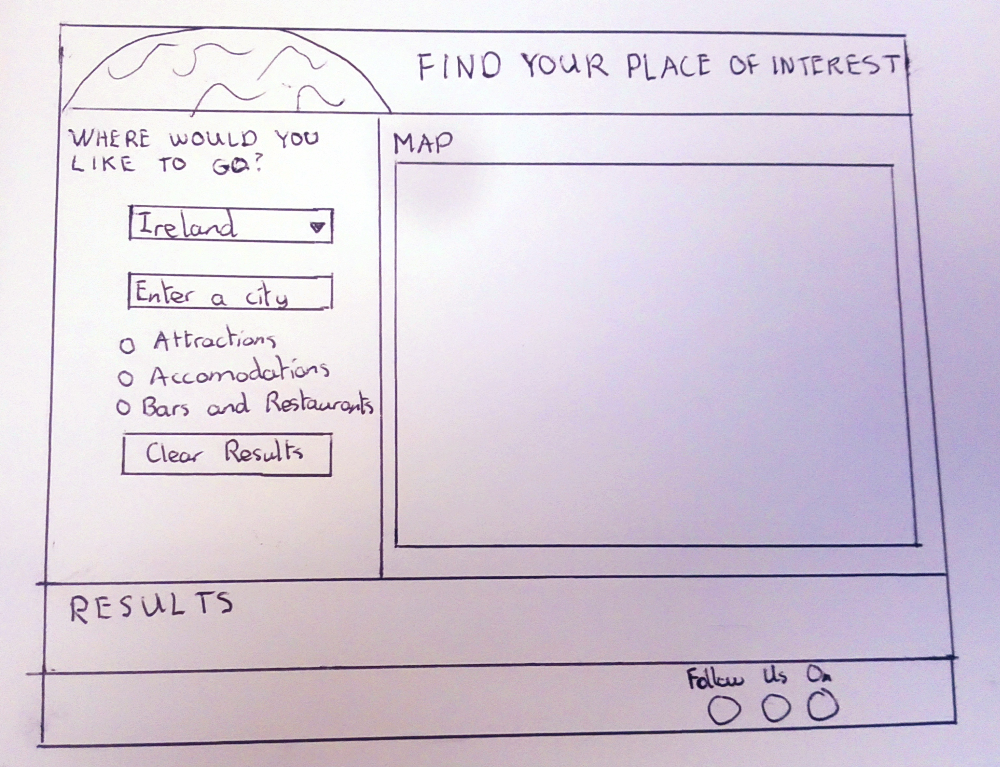 FIND YOUR PLACE OF INTEREST
WHERE WOULD YOU
LIKE TO GO?
Ireland
Enter a city
Attractions
Accomodations
Bars and Restaurants
Clear Results
MAP
RESULTS
Follow Us On